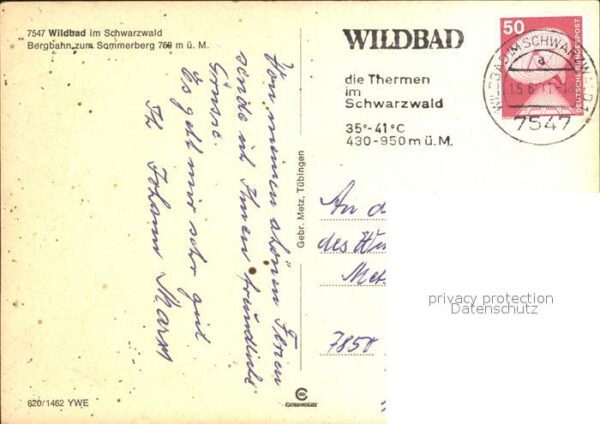 7547 Wildbad im Schwarzwald
Bergbahn zum Sommerberg 750 m ü. M.
Von meinen schönen Ferien
sende ich Ihnen freundliche
Grüsse.
Es geht mir sehr gut
Ihr Johann
Gebr. Metz, Tübingen
620/1462 YWE
WILDBAD
die Thermen
im
Schwarzwald
35°-41°C
430-950 m ü. M.
50
DEUTSCHE BUNDESPOST
WILDBAD IM SCHWARZWALD
a
15.6.
7547
An d
des
Met
7850
privacy protection
Datenschutz